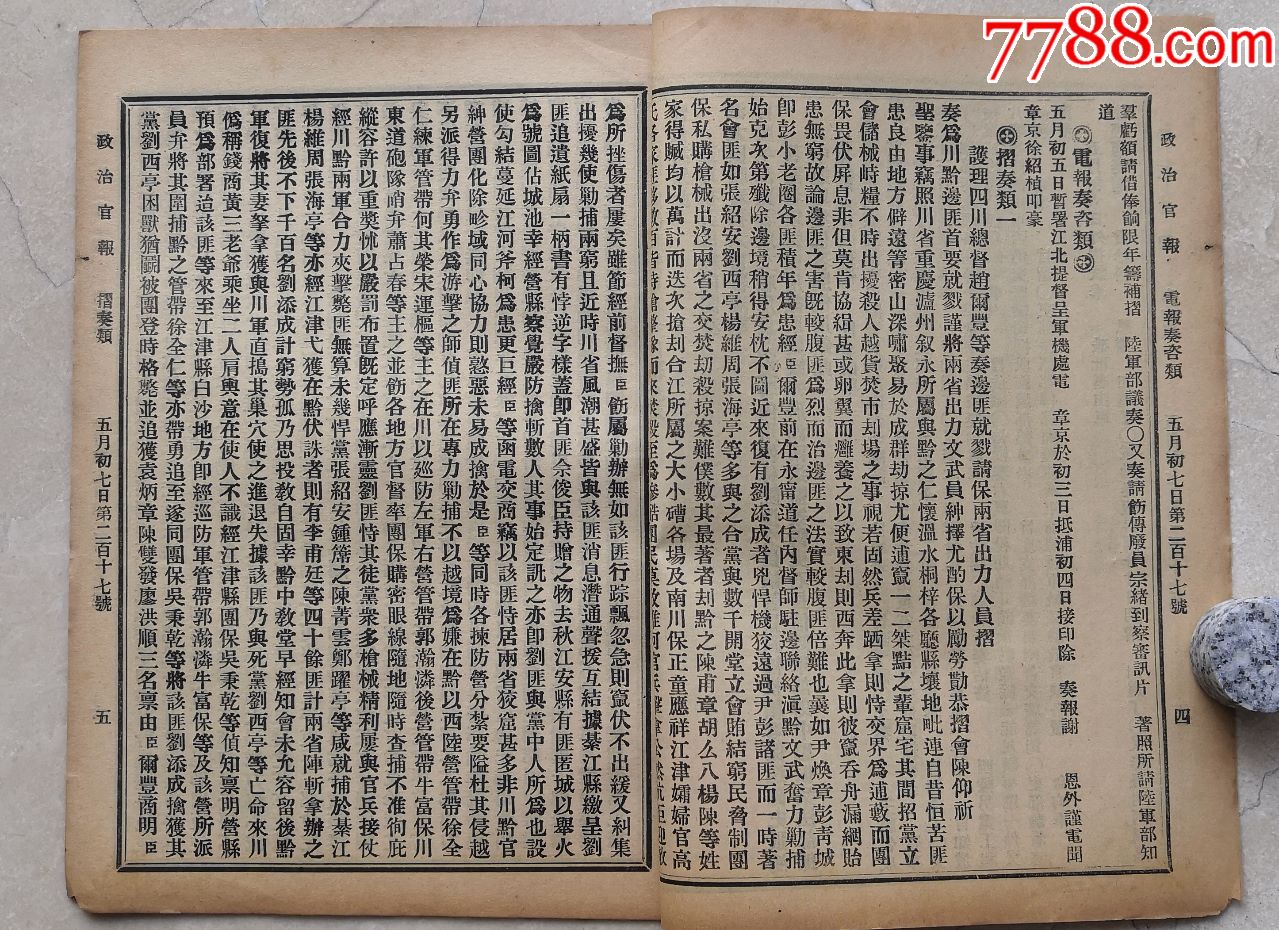 7788.com
政治官報 電報奏咨類 五月初七日第二百十七號 四
羣虧額請借俸餉限年籌補摺 陸軍部議奏○又奏請飭傳廢員宗緒到察審訊片 著照所請陸軍部知
道
電報奏咨類
五月初五日暫署江北提督呈軍機處電 章京於初三日抵浦初四日接印除 奏報謝 恩外謹電聞
章京徐紹楨叩豪
摺奏類一
護理四川總督趙爾豐等奏邊匪就戮請保兩省出力人員摺
奏爲川黔邊匪首要就戮謹將兩省出力文武員紳擇尤酌保以勵勞勩恭摺會陳仰祈
聖鑒事竊照川省重慶瀘州叙永所屬與黔之仁懷溫水桐梓各廳縣壤地毗連自昔恒苦匪
患良由地方僻遠箐密山深嘯聚易於成群劫掠尤便逋竄一二桀黠之輩窟宅其間招黨立
會儲械峙糧不時出擾殺人越貨焚市刦場之事視若固然兵差踊拿則恃交界爲逋藪而團
保畏伏屏息非但莫肯協緝甚或卵翼而癰養之以致東刦則西奔此拿則彼竄吞舟漏網貽
患無窮故論邊匪之害旣較腹匪爲烈而治邊匪之法實較腹匪倍難也曩如尹煥章彭靑城
卽彭小老圈各匪積年爲患經臣爾豐前在永甯道任內督師駐邊聯絡滇黔文武奮力勦捕
始克次第殲除邊境稍得安枕不圖近來復有劉添成者兇悍機狡遠過尹彭諸匪而一時著
名會匪如張紹安劉西亭楊維周張海亭等多與之合黨與數千開堂立會賄結窮民脅制團
保私購槍械出沒兩省之交焚刦殺掠案難僕數其最著者刦黔之陳甫章胡么八楊陳等姓
家得贓均以萬計而迭次搶刦合江所屬之大小磵各場及南川保正童應祥江津孀婦官高
爲所挫傷者屢矣雖節經前督撫臣飭屬勦辦無如該匪行踪飄忽急則竄伏不出緩又糾集
出擾幾使勦捕兩窮且近時川省風潮甚盛皆與該匪消息潛通聲援互結據綦江縣繳呈劉
匪追遺紙扇一柄書有悖逆字樣蓋卽首匪佘俊臣持贈之物去秋江安縣有匪匿城以舉火
爲號圖佔城池幸經營縣察覺嚴防擒斬數人其事始定訊之亦卽劉匪與黨中人所爲也設
使勾結蔓延江河斧柯爲患更巨經臣等函電交商竊以該匪恃居兩省狡窟甚多非川黔官
紳營團化除畛域同心協力則憝惡未易成擒於是臣等同時各揀防營分紮要隘杜其侵越
另派得力弁勇作爲游擊之師偵匪所在專力勦捕不以越境爲嫌在黔以西陸營管帶徐全
仁練軍管帶何其榮宋運樞等主之在川以廵防左軍右營管帶郭瀚潾後營管帶牛富保川
東道砲隊哨弁蕭占春等主之並飭各地方官督率團保購密眼線隨地隨時查捕不准徇庇
縱容許以重奬怵以嚴罰布置旣定呼應漸靈劉匪恃其徒黨衆多槍械精利屢與官兵接仗
經川黔兩軍合力夾擊斃匪無算未幾悍黨張紹安鍾簿之陳菁雲鄭躍亭等咸就捕於綦江
楊維周張海亭等亦經江津弋獲在黔伏誅者則有李甫廷等四十餘匪計兩省陣斬拿辦之
匪先後不下千百名劉添成計窮勢孤乃思投敎自固幸黔中敎堂早經知會未允容留後黔
軍復將其妻孥拿獲與川軍直搗其巢穴使之進退失據該匪乃與死黨劉西亭等亡命來川
僞稱錢商黃三老爺乘坐二人肩輿意在使人不識經江津縣團保吳秉乾等偵知禀明營縣
預爲部署迨該匪等來至江津縣白沙地方卽經巡防軍管帶郭瀚潾牛富保等及該營所派
員弁將其圍捕黔之管帶徐全仁等亦帶勇追至遂同團保吳秉乾等將該匪劉添成擒獲其
黨劉西亭困獸猶鬬被團登時格斃並追獲袁炳章陳雙發廖洪順三名禀由臣爾豐商明臣
政治官報 摺奏類 五月初七日第二百十七號 五